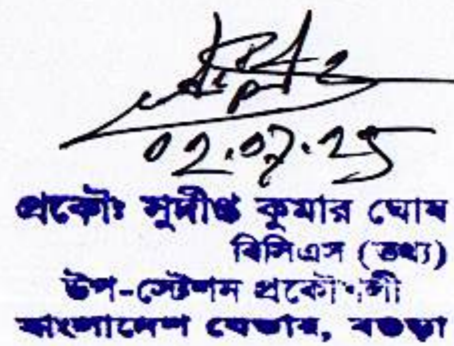 02.07.25
প্রকৌঃ সুদীপ্ত কুমার ঘোষ
বিসিএস (তথ্য)
উপ-স্টেশন প্রকৌশলী
বাংলাদেশ বেতার, বগুড়া